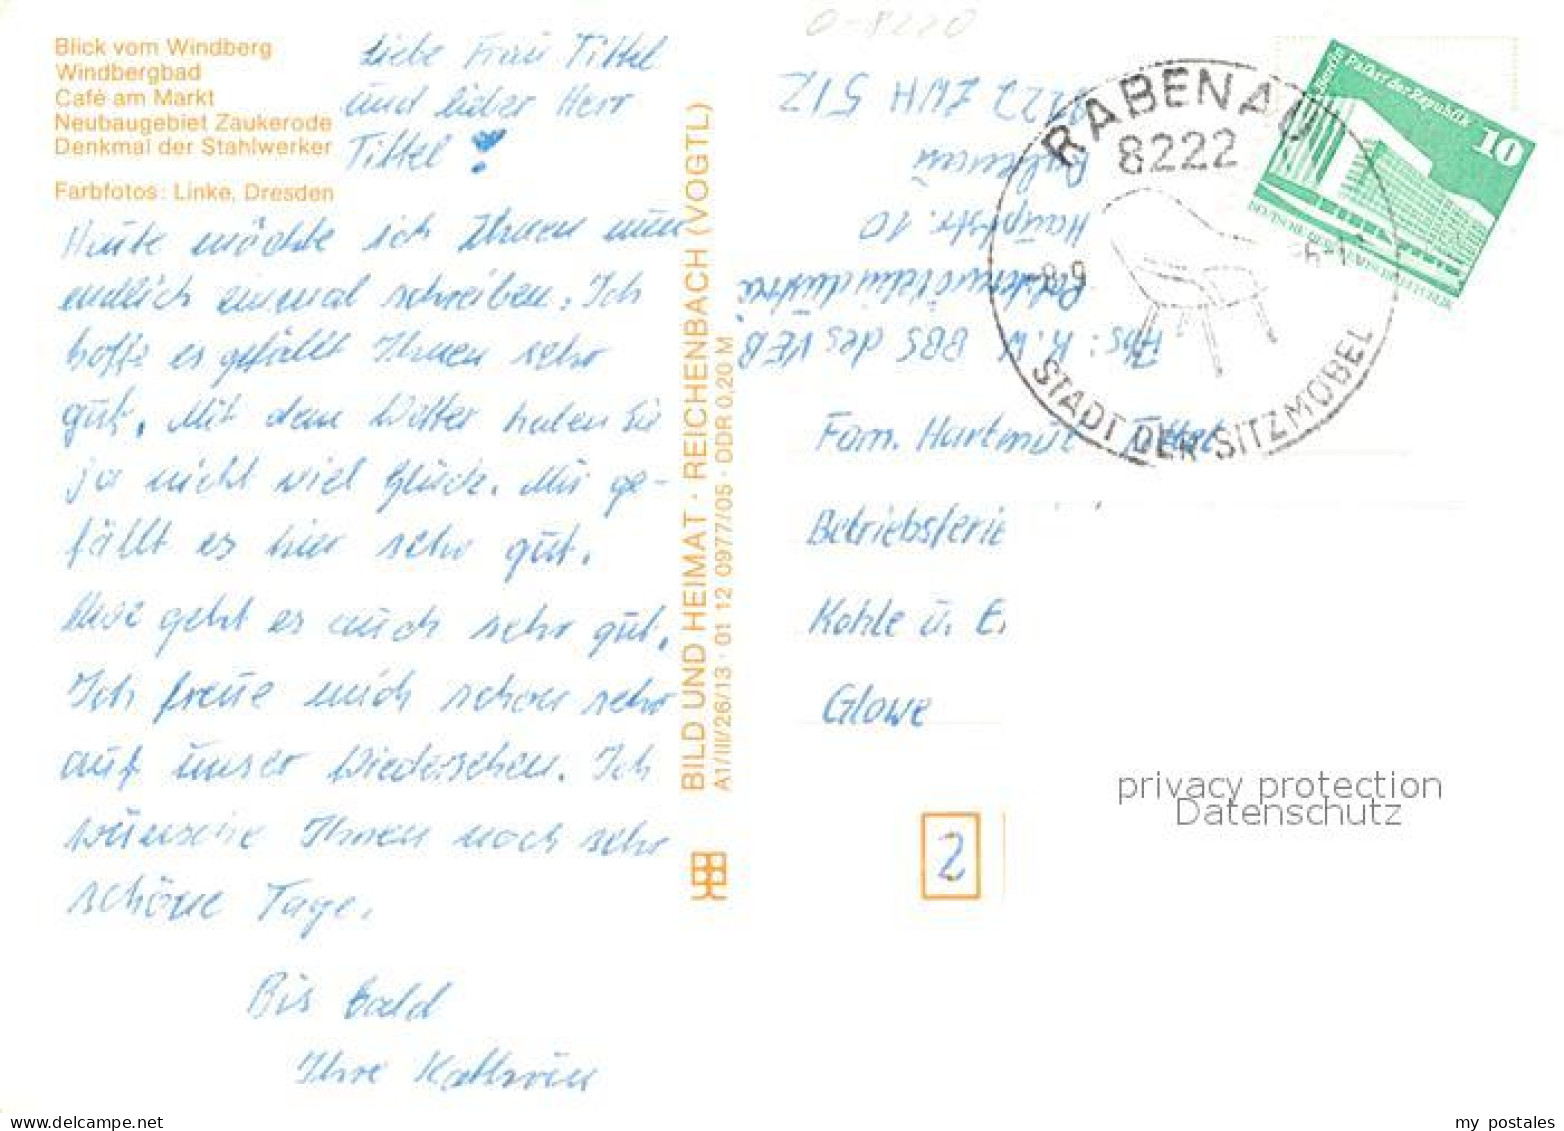 Blick vom Windberg
Windbergbad
Café am Markt
Neubaugebiet Zaukerode
Denkmal der Stahlwerker
Farbfotos: Linke, Dresden
Liebe Frau Tittel
und lieber Herr
Tittel!
Heute möchte ich Ihnen nun
endlich einmal schreiben. Ich
hoffe es gefällt Ihnen sehr
gut. Mit dem Wetter haben Sie
ja nicht viel Glück. Mir ge-
fällt es hier sehr gut.
geht es auch sehr gut.
Ich freue mich schon sehr
auf unser Wiedersehen. Ich
wünsche Ihnen noch sehr
schöne Tage.
Bis bald
Ihre Kathrin
BILD UND HEIMAT · REICHENBACH (VOGTL)
A1/III/26/13 · 01 12 0977/05 · DDR 0,20 M
0-8220
Abs: K.W. BBS des VEB
Polstermöbelindustrie
Hauptstr. 10
Rabenau
8222 ZWH 512
RABENAU
8222
STADT DER SITZMÖBEL
Berlin Palast der Republik
10
DEUTSCHE DEMOKRATISCHE REPUBLIK
Fam. Hartmut Tittel
Betriebsferie
Kohle u. E
Glowe
2
privacy protection
Datenschutz
my postales